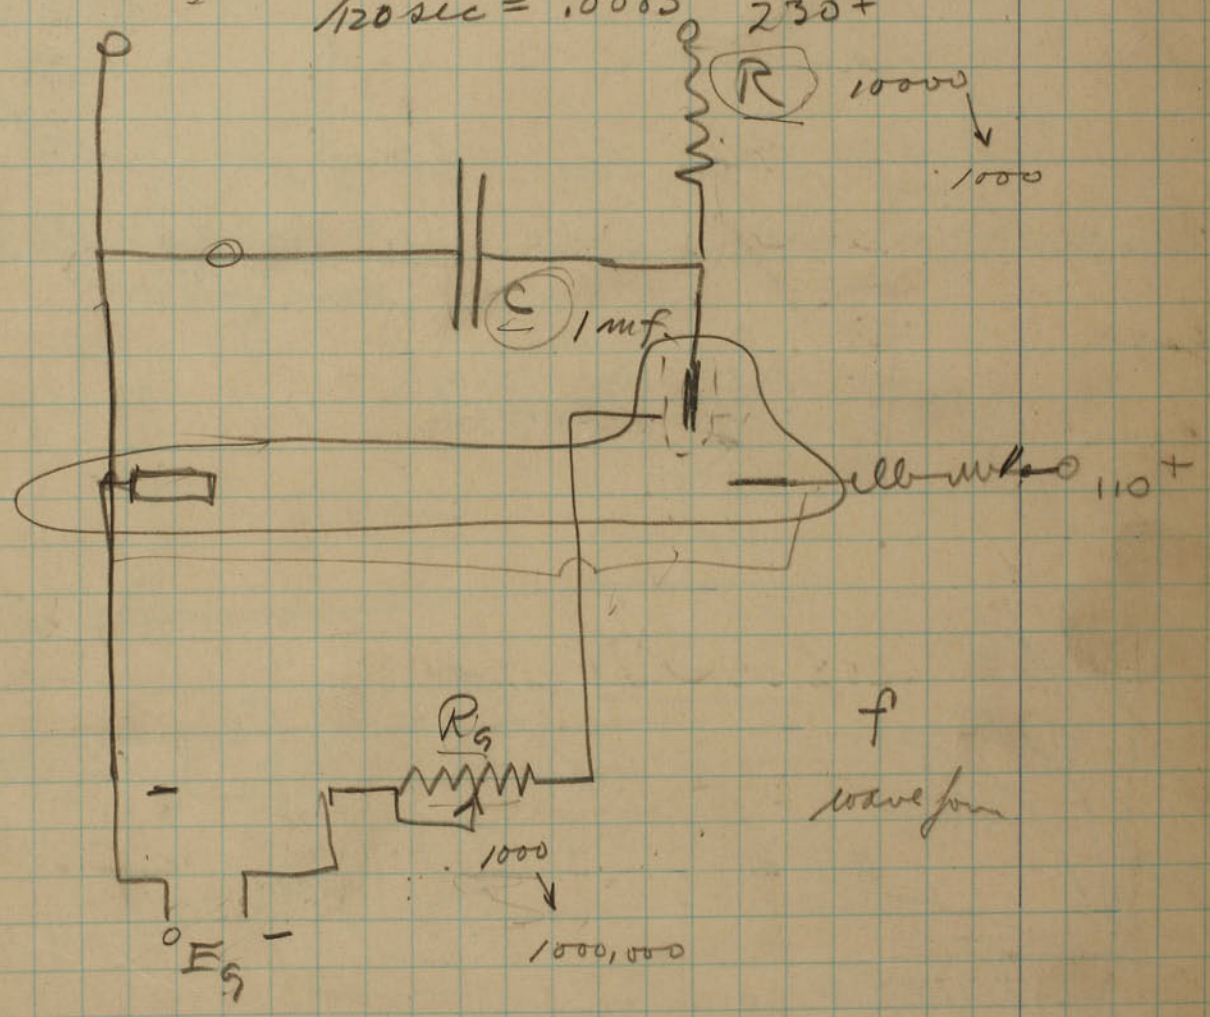 /120 sec = .0083 230+
R 10000
1000
C 1 mf.
110+
Rg
f
wave form
1000
1000,000
Eg